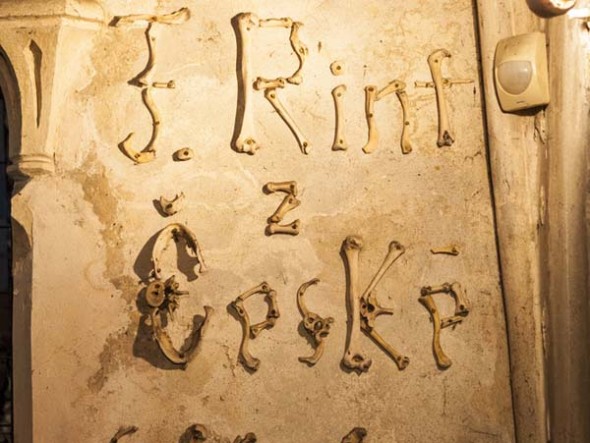 F. Rint
z
České